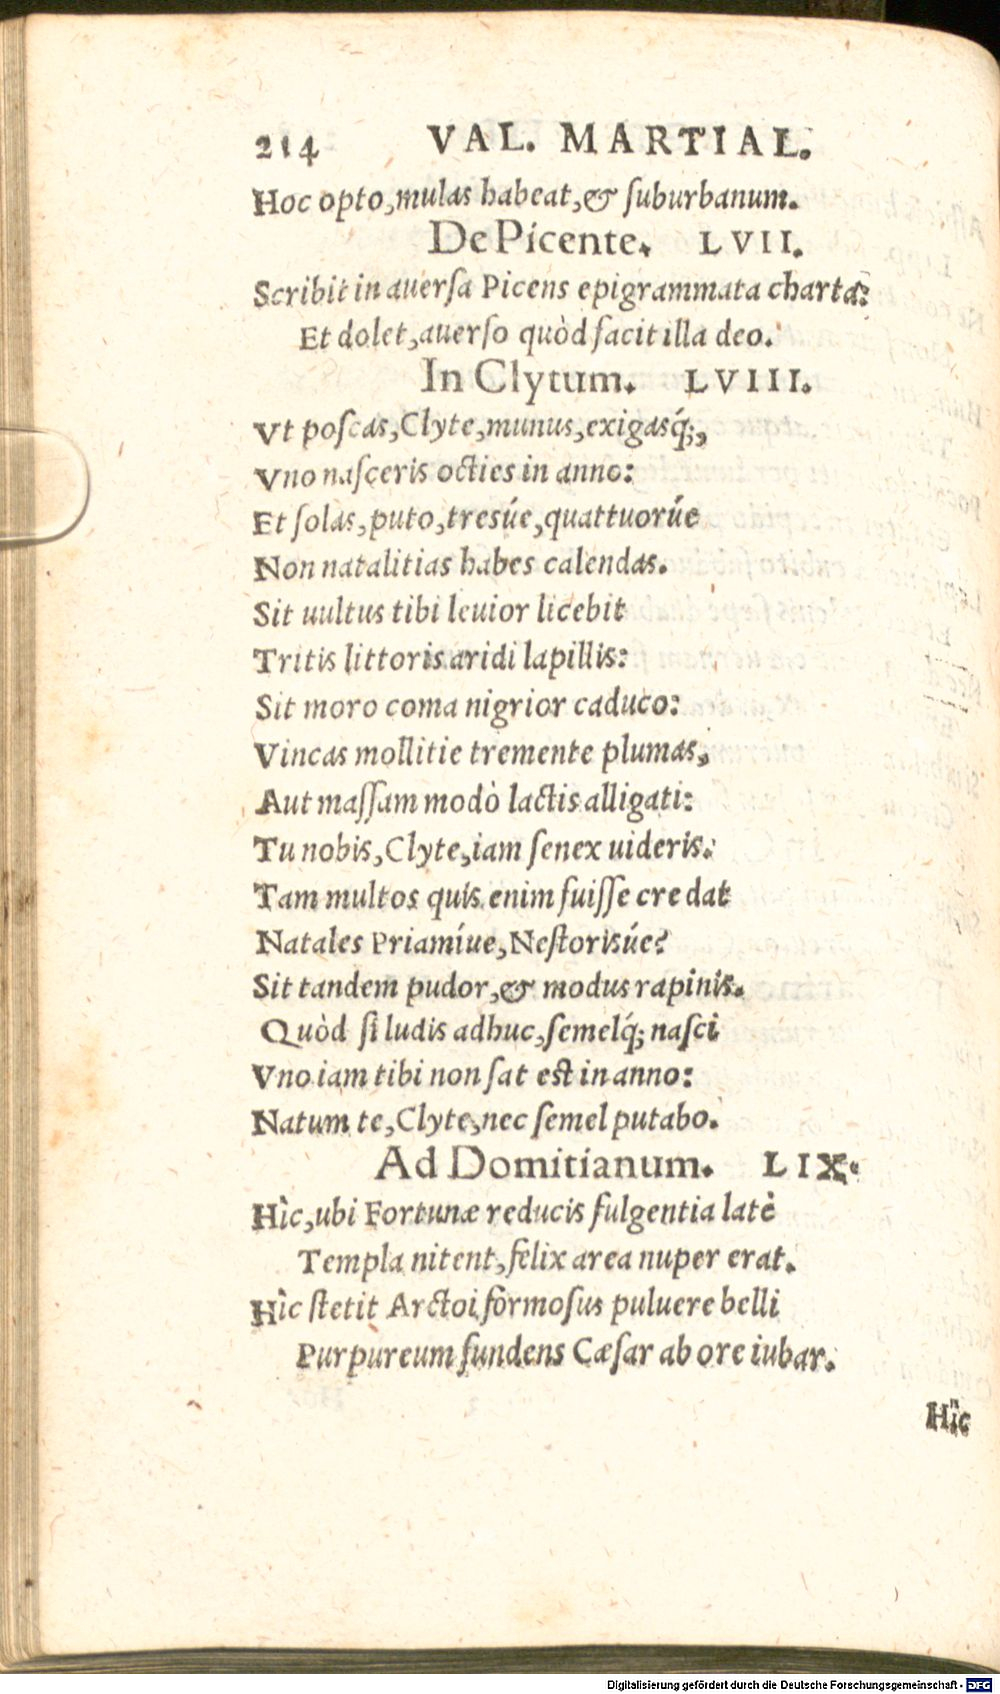 214 VAL. MARTIAL.
Hoc opto, mulas habeat, & ſuburbanum.
De Picente. LVII.
Scribit in auerſa Picens epigrammata charta:
Et dolet, auerſo quòd facit illa deo.
In Clytum. LVIII.
Vt poſcas, Clyte, munus, exigasq́;,
Vno naſceris octies in anno:
Et ſolas, puto, tresúe, quattuorúe
Non natalitias habes calendas.
Sit uultus tibi leuior licebit
Tritis littoris aridi lapillis:
Sit moro coma nigrior caduco:
Vincas mollitie tremente plumas,
Aut maſſam modò lactis alligati:
Tu nobis, Clyte, iam ſenex uideris.
Tam multos quis enim fuiſſe credat
Natales Priamíue, Neſtorisúe?
Sit tandem pudor, & modus rapinis.
Quòd ſi ludis adhuc, ſemelq́; naſci
Vno iam tibi non ſat eſt in anno:
Natum te, Clyte, nec ſemel putabo.
Ad Domitianum. LIX.
Hìc, ubi Fortunæ reducis fulgentia latè
Templa nitent, felix area nuper erat.
Hìc ſtetit Arctoi formoſus puluere belli
Purpureum fundens Cæſar ab ore iubar.
Hìc
Digitalisierung gefördert durch die Deutsche Forschungsgemeinschaft - DFG